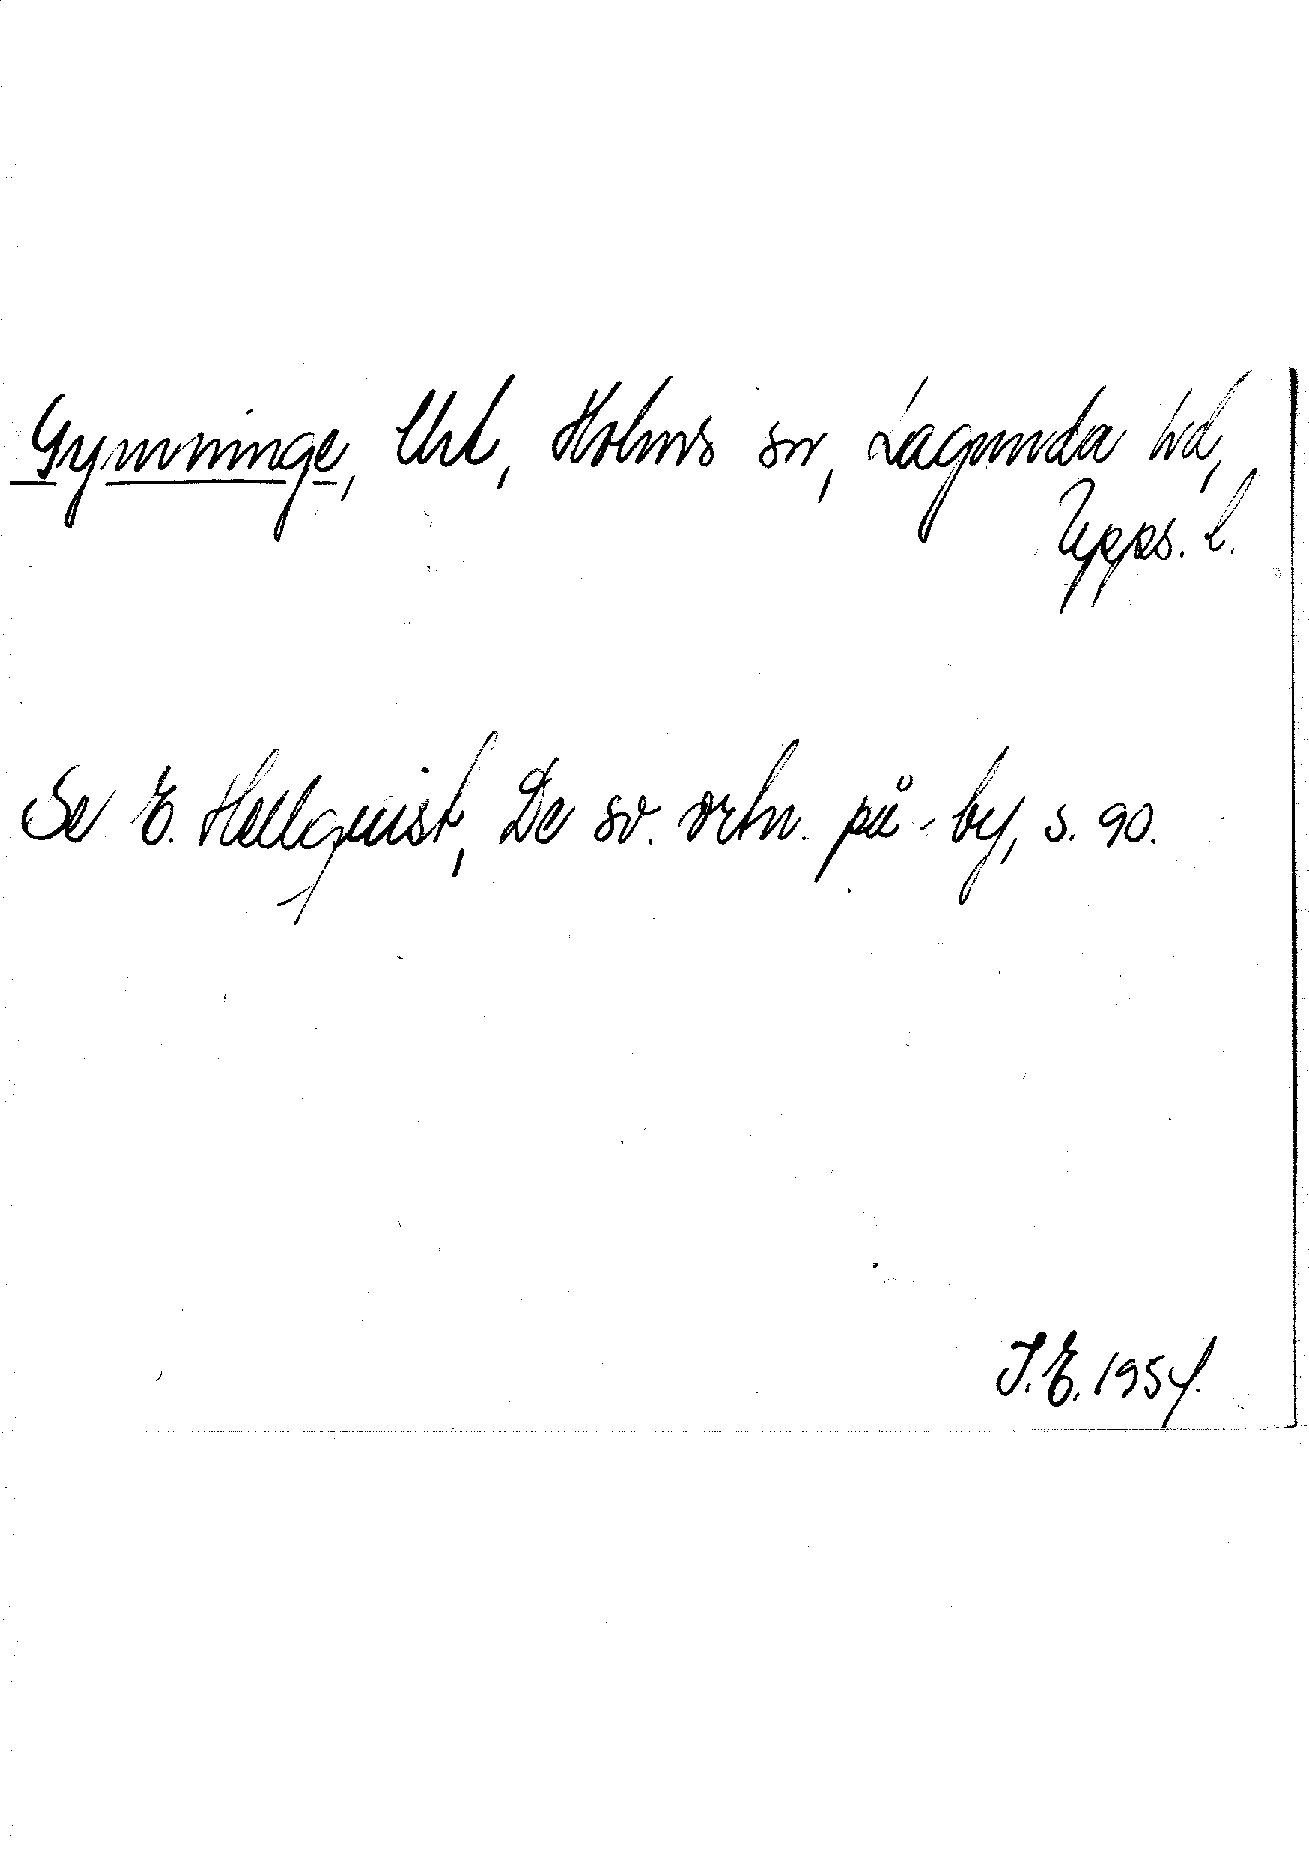 Gymninge, Uhl, Holms sn, Lagunda hd,
Upps. l.
Se E. Hellquist, De sv. ortn. på -by, s. 90.
I.E. 1954.